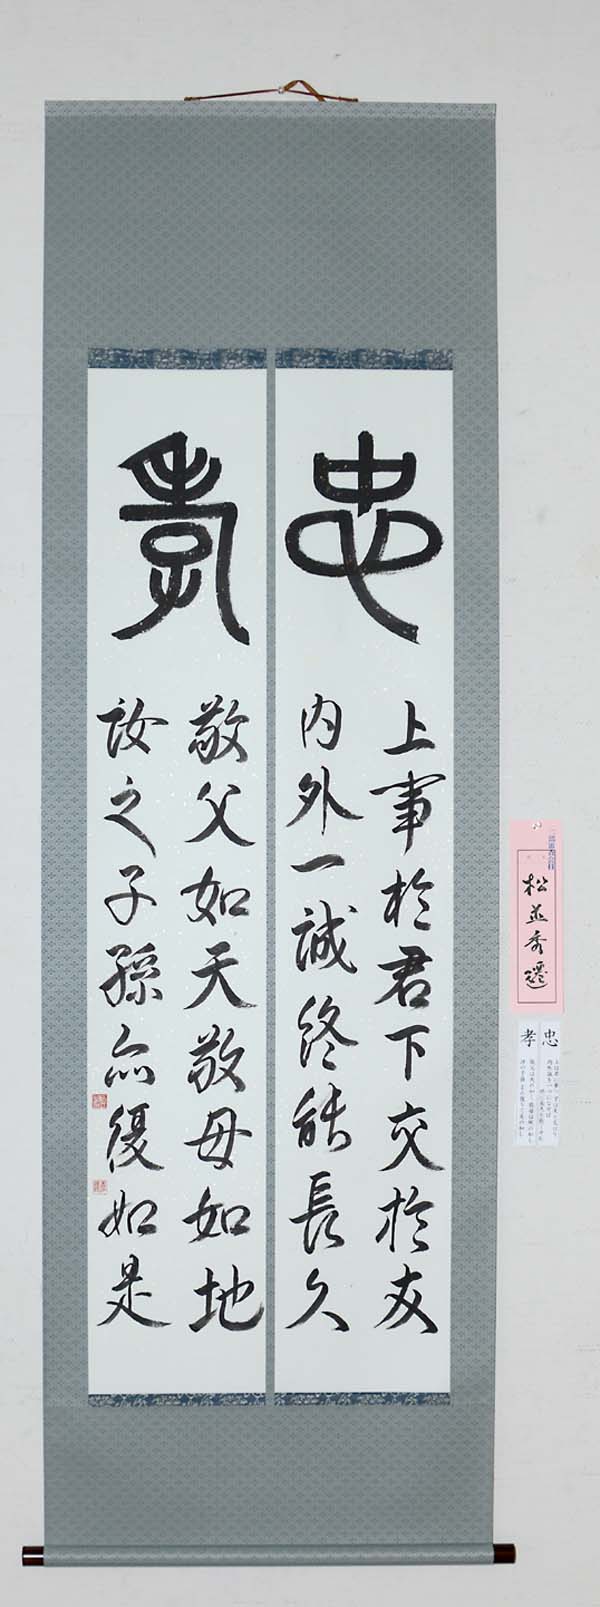 忠
上事於君下交於友
内外一誠終能長久
孝
敬父如天敬母如地
汝之子孫亦復如是
松並秀遷
忠
孝